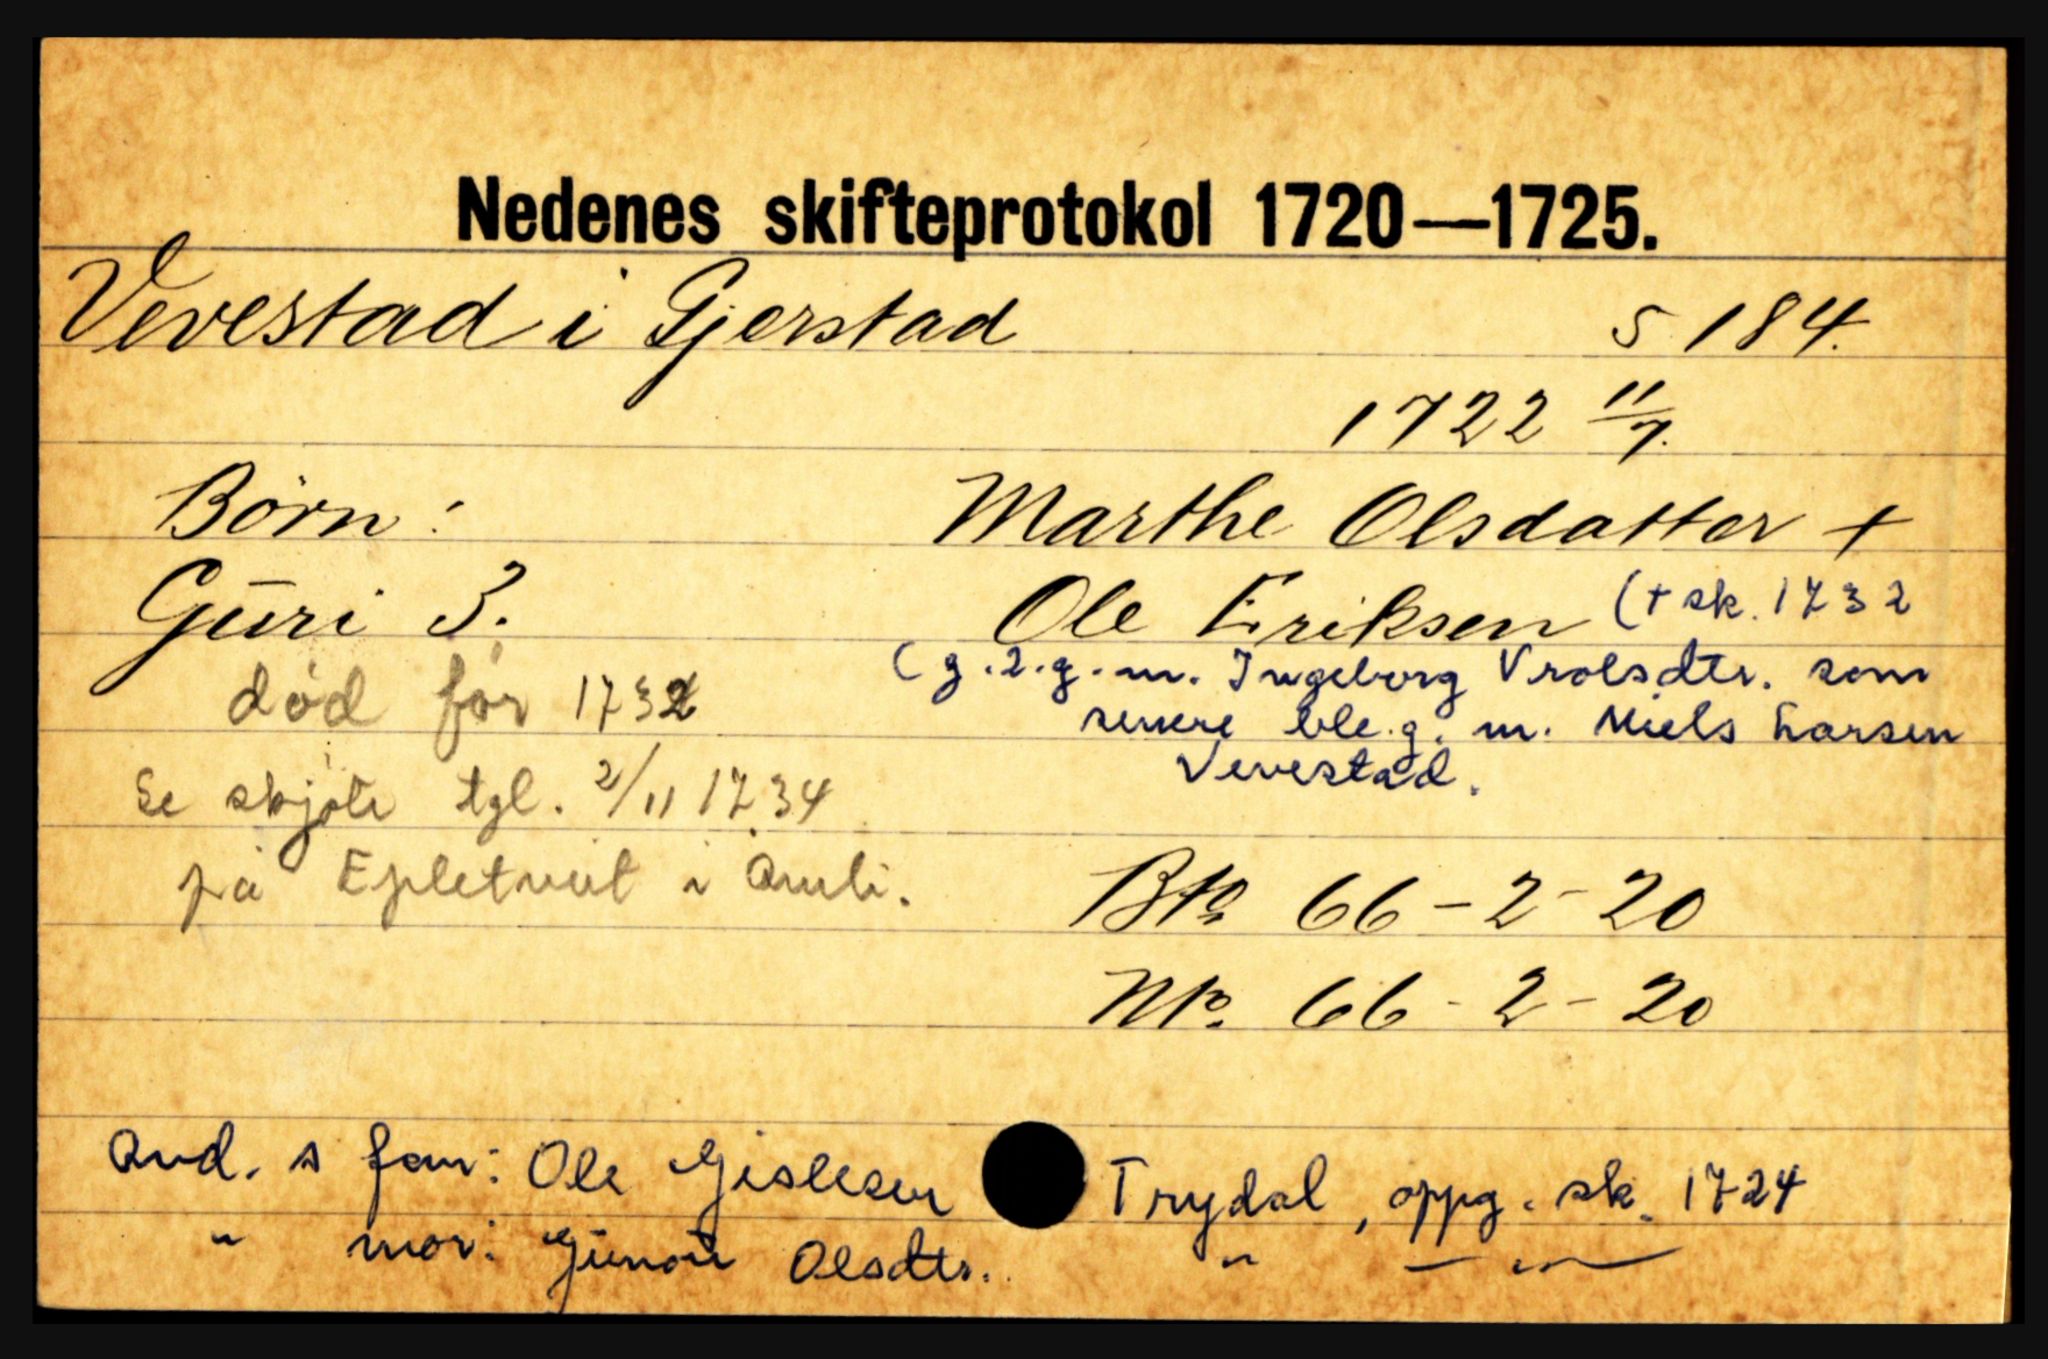 Nedenes skifteprotokol 1720—1725.
Vevestad i Gjerstad s 184.
1722 11/7.
Børn: Marthe Olsdatter +
Guri 3. Ole Eriksen (+ sk. 1732
(g. 2. g. m. Ingeborg Vrolsdtr. som
død før 1732 senere ble g. m. Niels Larsen
Vevestad.
Se skjøte tgl. 2/11 1734
på Epletveit i Åmli.
Bto 66-2-20
Nto. 66-2-20
Avd. s far: Ole Gislesen Trydal, oppg. sk. 1724
" mor: Olsdtr. " — " —